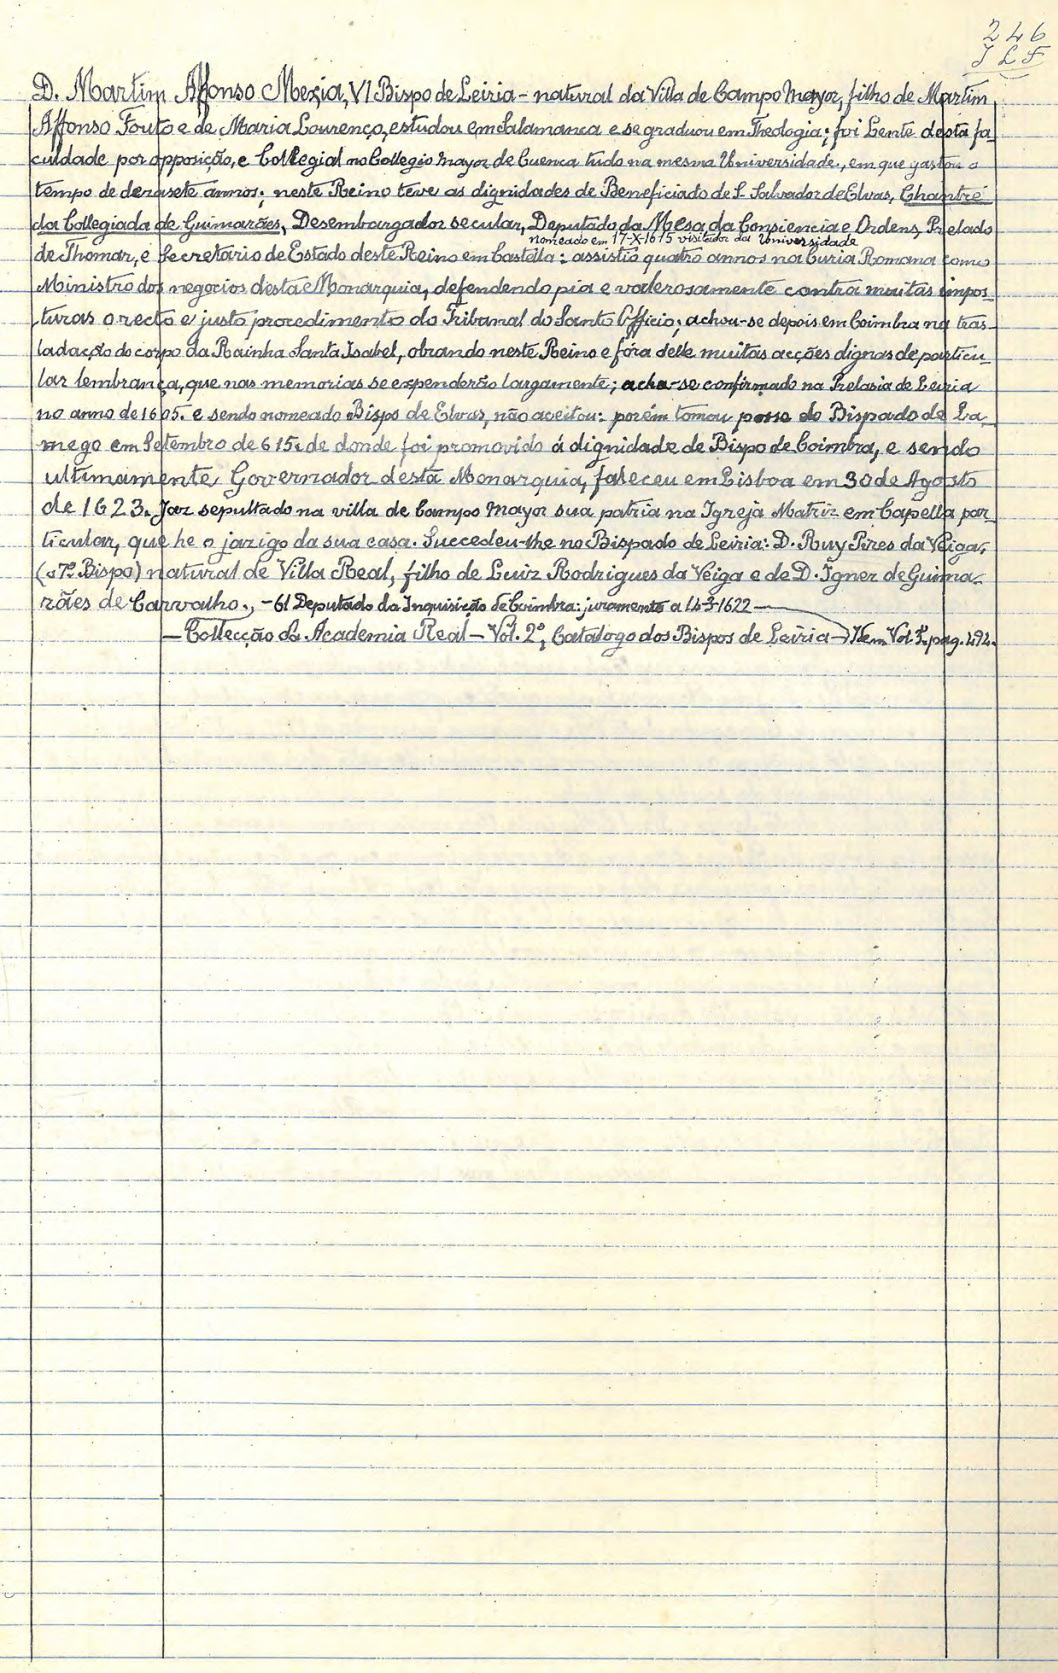 246
D. Martim Affonso Mexia, VI Bispo de Leiria - natural da Villa de Campo Mayor, filho de Martim
Affonso Fouto e de Maria Lourenço, estudou em Salamanca e se graduou em Theologia; foi Lente desta fa-
culdade por opposição, e Collegial no Collegio Mayor de Cuenca tudo na mesma Universidade, em que gastou o
tempo de dezasete annos; neste Reino teve as dignidades de Beneficiado de S. Salvador de Elvas, Chantre
da Collegiada de Guimarães, Desembargador secular, Deputado da Mesa da Consciencia e Ordens, Prelado
nomeado em 17-X-1615 visitador da Universidade
de Thomar, e Secretario de Estado deste Reino em Castella: assistio quatro annos na Curia Romana como
Ministro dos negocios desta Monarquia, defendendo pia e valerosamente contra muitas impos-
turas o recto e justo procedimento do Tribunal do Santo Officio; achou-se depois em Coimbra na tras-
ladação do corpo da Rainha Santa Isabel, obrando neste Reino e fóra delle muitas acções dignas de particu-
lar lembrança, que nas memorias se expenderão largamente; acha-se confirmado na Prelasia de Leiria
no anno de 1605. e sendo nomeado Bispo de Elvas, não aceitou: porém tomou posse do Bispado de La-
mego em Setembro de 615. de donde foi promovido á dignidade de Bispo de Coimbra, e sendo
ultimamente Governador desta Monarquia, faleceu em Lisboa em 30 de Agosto
de 1623. Jaz sepultado na villa de Campo Mayor sua patria na Igreja Matriz em Capella par-
ticular, que he o jazigo da sua casa. Succedeu-lhe no Bispado de Leiria: D. Ruy Pires da Veiga,
(o 7º Bispo) natural de Villa Real, filho de Luiz Rodrigues da Veiga e de D. Ignez de Guima-
rães de Carvalho., - 61 Deputado da Inquisição de Coimbra: juramento a 14-3-1622 —
— Collecção da Academia Real - Vol. 2º, Catalogo dos Bispos de Leiria - Idem Vol. pag. 494.